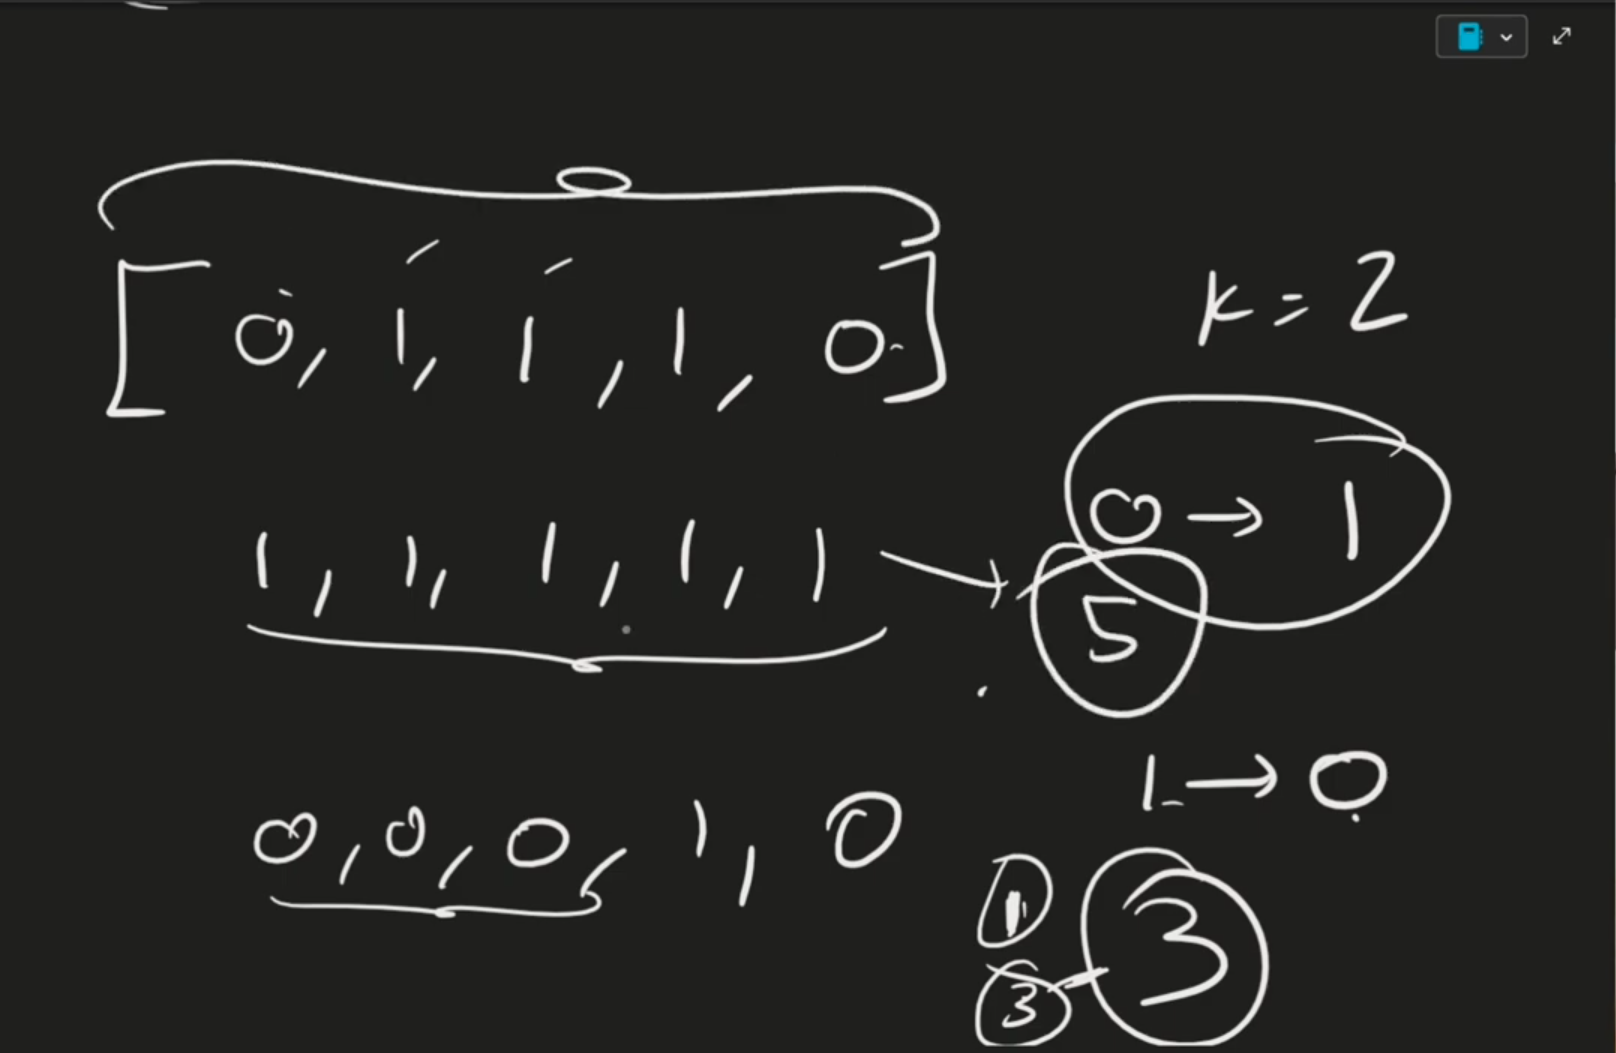 [0, 1, 1, 1, 0]
k = 2
0 → 1
1, 1, 1, 1, 1 → 5
1 → 0
0, 0, 0, 1, 0
1
3
3